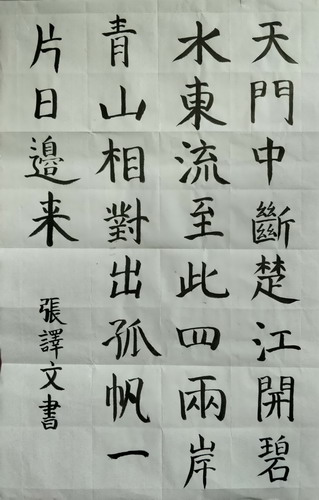 天門中斷楚江開碧
水東流至此四兩岸
青山相對出孤帆一
片日邊来
張譯文書